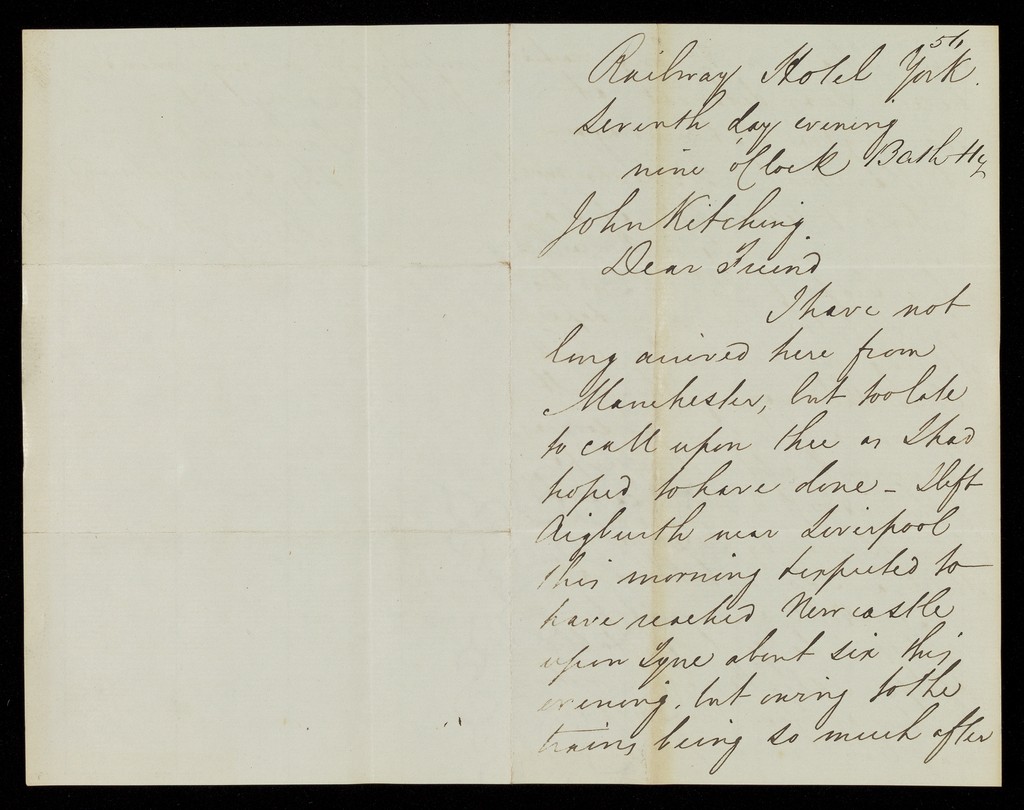 Railway Hotel York.
seventh day evening
nine o'Clock
John Kitching
Dear Friend
I have not
long arrived here from
Manchester, but too late
to call upon thee as I had
hoped to have done - I left
Aigburth near Liverpool
this morning & expected to
have reached Newcastle
upon Tyne about six this
evening, but owing to the
trains being so much after